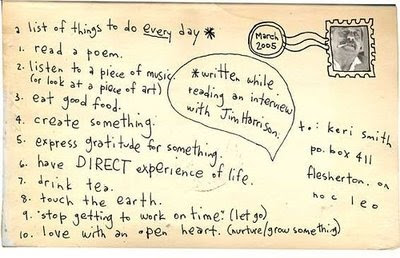 a list of things to do every day *
1. read a poem.
2. listen to a piece of music.
(or look at a piece of art)
3. eat good food.
4. create something.
5. express gratitude for something.
6. have DIRECT experience of life.
7. drink tea.
8. touch the earth.
9. "stop getting to work on time." (let go)
10. love with an open heart. (nurture/grow something)
*written while
reading an interview
with Jim Harrison.
March
2005
to: keri smith
po. box 411
flesherton. on
noc 1eo